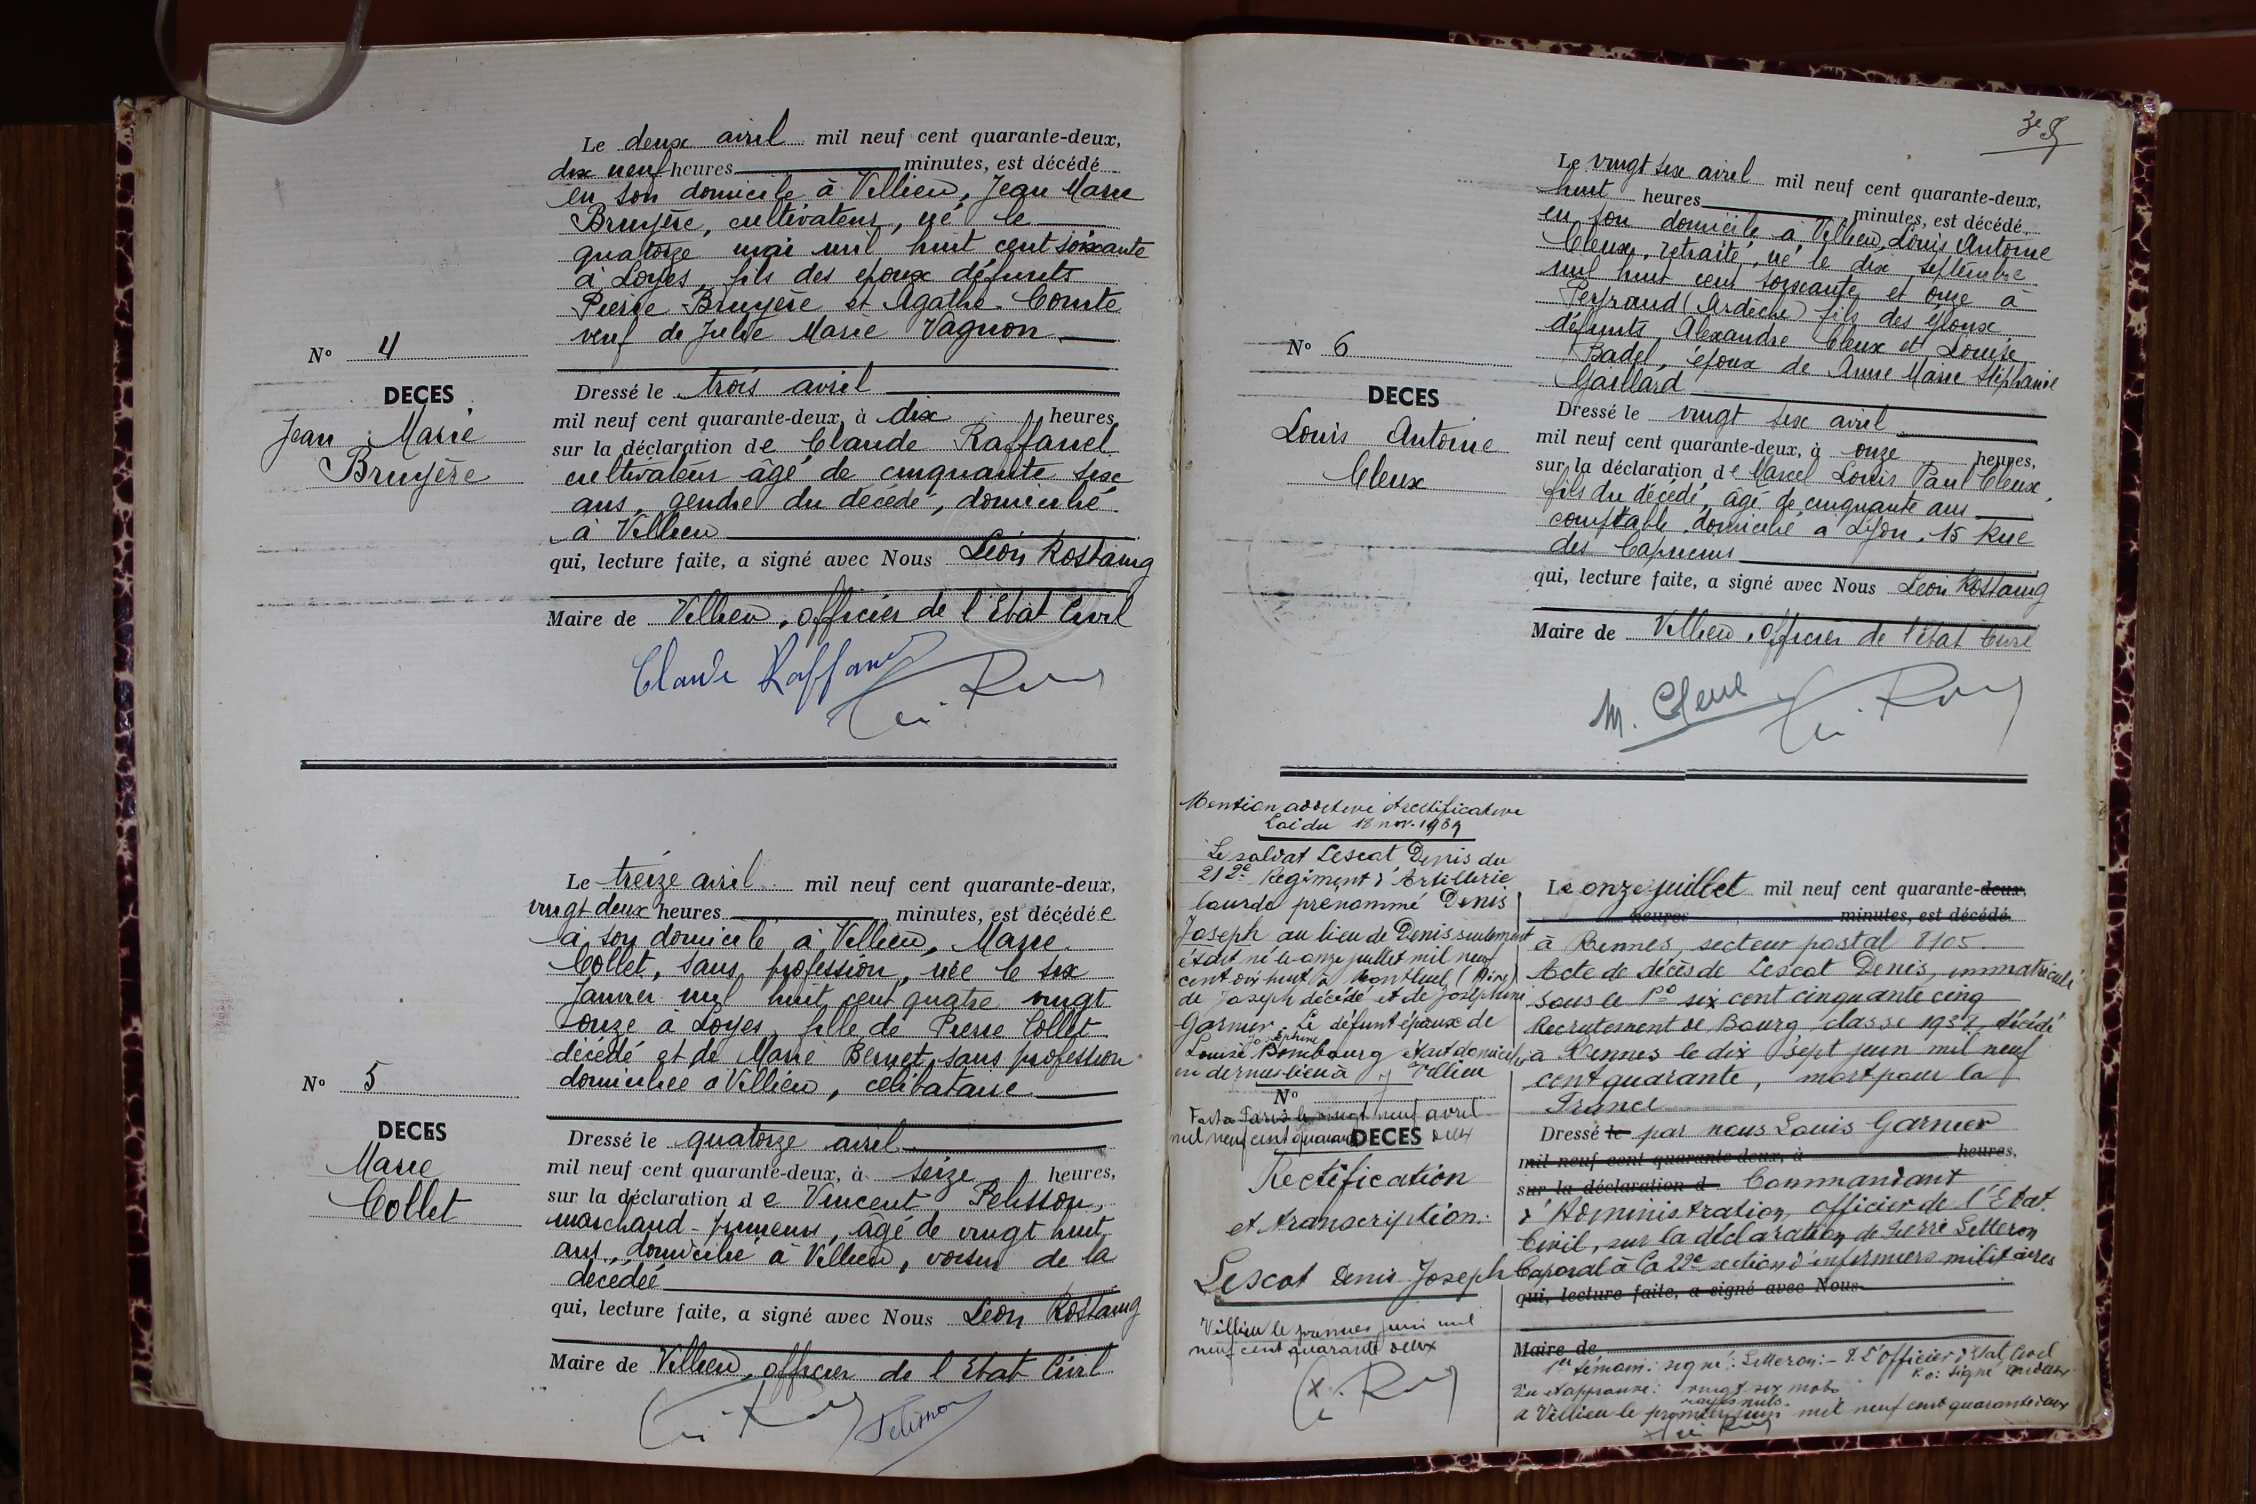 Le deux avril mil neuf cent quarante-deux,
dix neuf heures minutes, est décédé
en son domicile à Villieu, Jean Marie
Bruyère, cultivateur, né le
quatorze mai mil huit cent soixante
à Loyes, fils des époux défunts
Pierre Bruyère et Agathe Comte
veuf de Julie Marie Vagnon
N° 4
DECES
Jean Marie
Bruyère
Dressé le trois avril
mil neuf cent quarante-deux, à dix heures,
sur la déclaration de Claude Raffanel
cultivateur âgé de cinquante six
ans, gendre du décédé, domicilié
à Villieu
qui, lecture faite, a signé avec Nous Léon Rostaing
Maire de Villieu, officier de l'Etat Civil
Claude Raffanel
Le treize avril mil neuf cent quarante-deux,
vingt deux heures minutes, est décédée
à son domicile à Villieu, Marie
Collet, sans profession, née le six
Janvier mil huit cent quatre vingt
onze à Loyes, fille de Pierre Collet
décédé et de Marie Bernet, sans profession
domiciliée à Villieu, célibataire
N° 5
DECES
Marie
Collet
Dressé le quatorze avril
mil neuf cent quarante-deux, à seize heures,
sur la déclaration de Vincent Pelisson,
marchand-primeurs, âgé de vingt huit
ans, domicilié à Villieu, voisin de la
décédée
qui, lecture faite, a signé avec Nous Léon Rostaing
Maire de Villieu, officier de l'Etat Civil
Pelisson
3e
Le vingt six avril mil neuf cent quarante-deux,
huit heures minutes, est décédé
en son domicile à Villieu, Louis Antoine
Cleux, retraité, né le dix septembre
mil huit cent soixante et onze à
Peyraud (Ardèche) fils des époux
défunts Alexandre Cleux et Louise
Badel, époux de Anne Marie Stéphanie
Gaillard
N° 6
DECES
Louis Antoine
Cleux
Dressé le vingt six avril
mil neuf cent quarante-deux, à onze heures,
sur la déclaration de Marcel Louis Paul Cleux,
fils du décédé, âgé de cinquante ans
comptable domicilié à Lyon, 15 Rue
des Capucins
qui, lecture faite, a signé avec Nous Léon Rostaing
Maire de Villieu, officier de l'état Civil
M. Cleux
Mention additive et rectificative
Loi du 18 nov. 1939
Le soldat Lescot Denis du
212e Régiment d'Artillerie
lourde prénommé Denis
Joseph au lieu de Denis seulement
était né le onze juillet mil neuf
cent dix huit à Montluel (Ain)
de Joseph décédé et de Joséphine
Garnier. Le défunt époux de
Joséphine
Louise Bombourg était domicilié
en dernier lieu à Villieu
N°
Fait à Paris le vingt neuf avril
mil neuf cent quarante deux
DECES
Rectification
et transcription.
Lescot Denis Joseph
Villieu le premier juin mil
neuf cent quarante deux
Le onze juillet mil neuf cent quarante-deux,
heures minutes, est décédé
à Rennes, secteur postal 8105
Acte de décès de Lescot Denis, immatriculé
sous le no six cent cinquante cinq
Recrutement de Bourg, classe 1938, décédé
à Rennes le dix sept juin mil neuf
cent quarante, mort pour la
France
Dressé le par nous Louis Garnier
mil neuf cent quarante-deux, à heures,
sur la déclaration d Commandant
d'Administration, officier de l'Etat
Civil, sur la déclaration de Pierre Letteron
Caporal à la 22e section d'infirmiers militaires
qui, lecture faite, a signé avec Nous
Maire de
1er témoin: signé: Letteron: - L'officier d'Etat Civil
Lu et approuvé: vingt six mots
rayés nuls.
à Villieu le premier juin mil neuf cent quarante deux